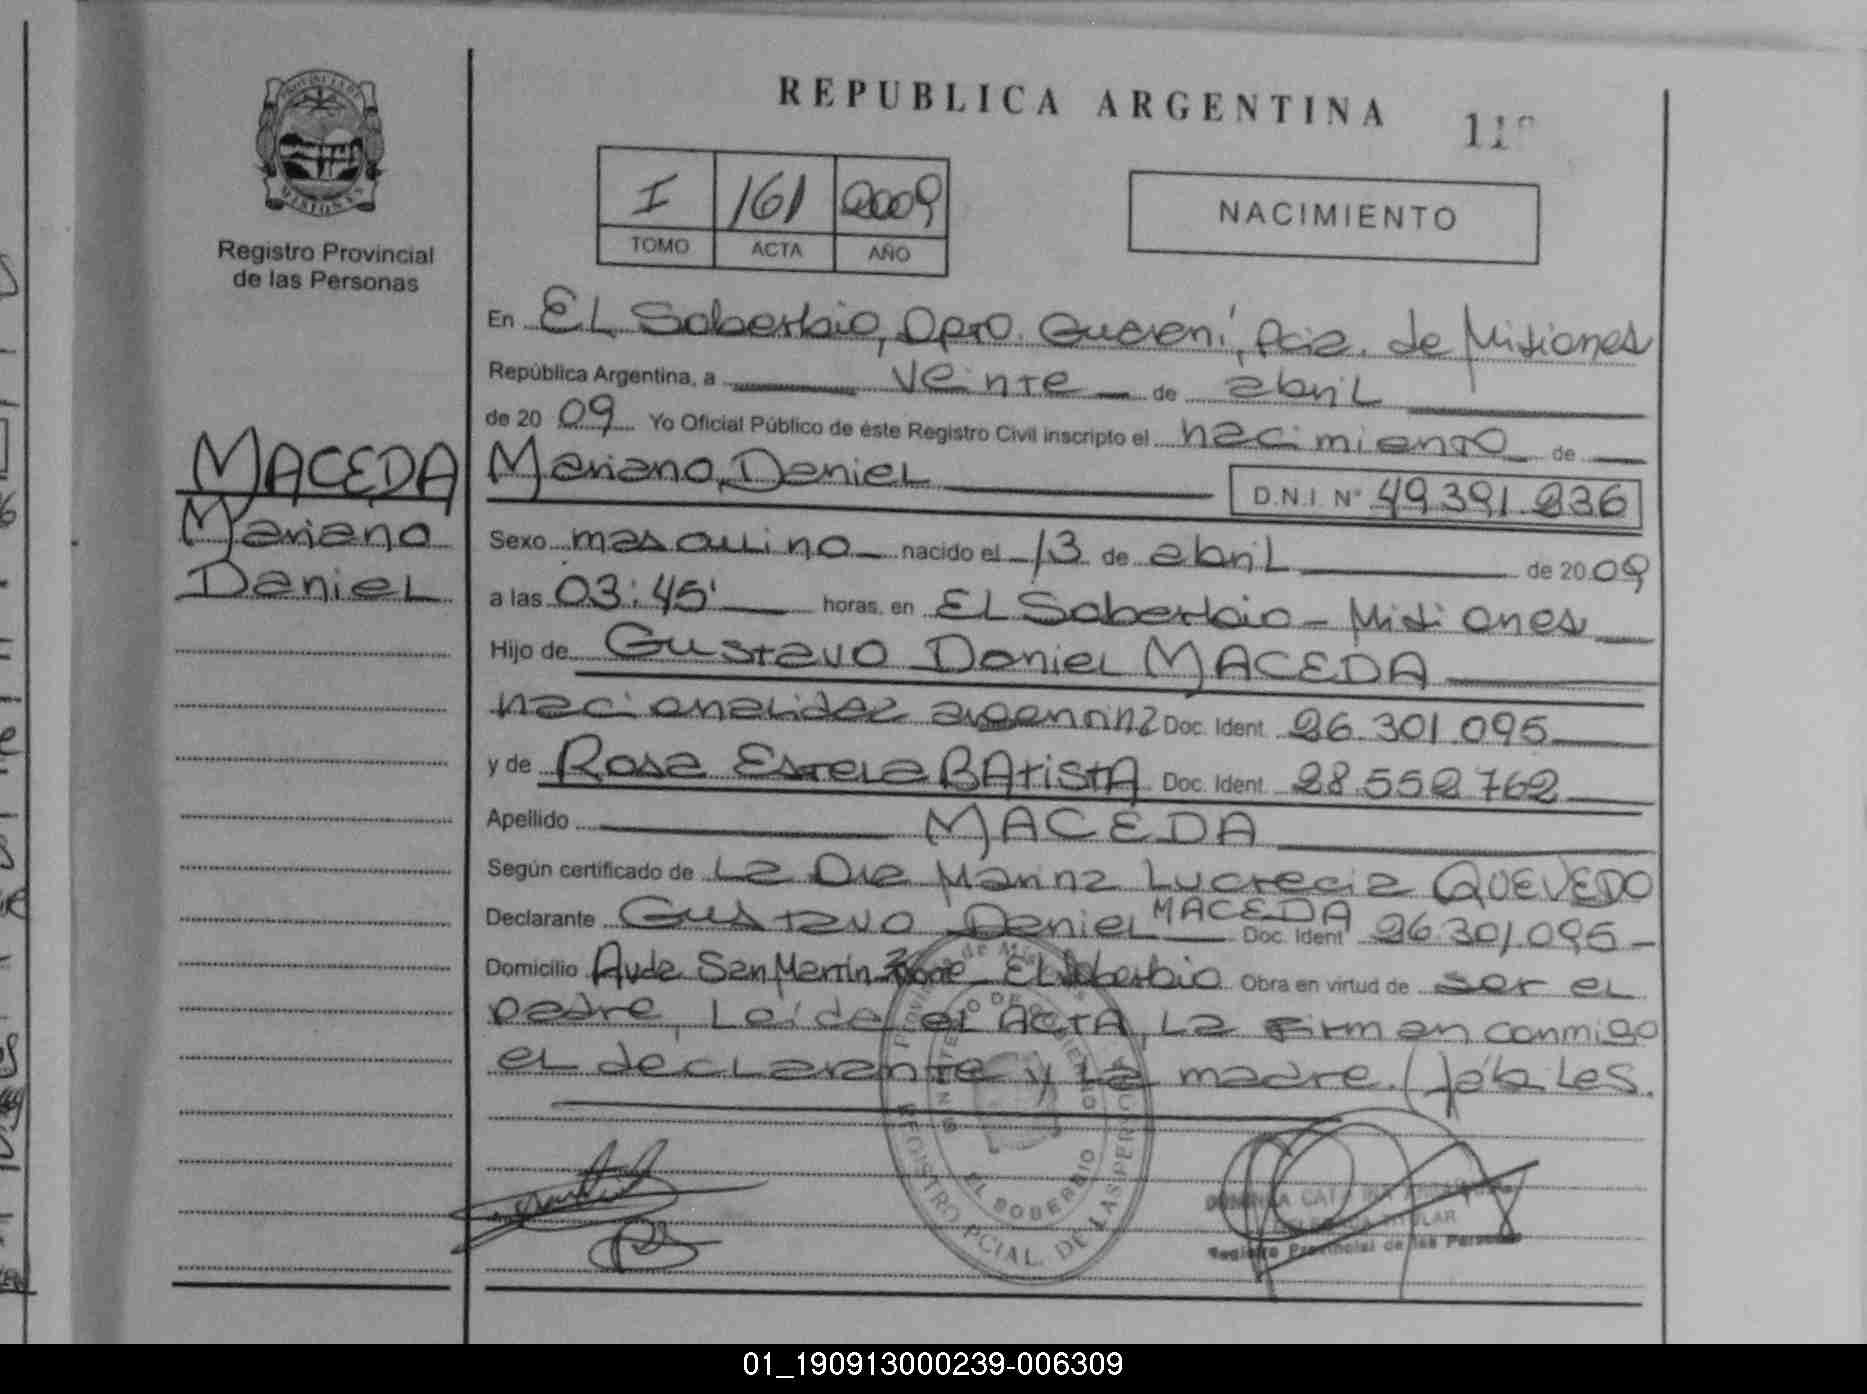 REPUBLICA ARGENTINA
I 161 2009
TOMO ACTA AÑO
NACIMIENTO
PROVINCIA DE MISIONES
Registro Provincial
de las Personas
MACEDA
Mariano
Daniel
En EL Soberbio, Dpto. Guaraní, Pcia. de Misiones
República Argentina, a veinte de abril
de 2009 Yo Oficial Público de éste Registro Civil inscripto el nacimiento de
Mariano Daniel D.N.I. Nº 49.391.236
Sexo masculino nacido el 13 de abril de 2009
a las 03:45' horas, en EL Soberbio - Misiones
Hijo de Gustavo Daniel MACEDA
nacionalidad argentina Doc. Ident. 26.301.095
y de Rosa Estela BAtistA Doc. Ident. 28.552.762
Apellido MACEDA
Según certificado de La Dra Marina Lucrecia QUEVEDO
Declarante Gustavo Daniel MACEDA Doc. Ident 26.301.095
Domicilio Avda San Martín EL Soberbio Obra en virtud de ser el
padre, Leída el ACTA, La firman conmigo
el declarante y La madre. Hábiles.
MINISTERIO DE GOBIERNO
REGISTRO PCIAL. DE LAS PERSONAS
EL SOBERBIO
TITULAR
Registro Provincial de las Personas
01_190913000239-006309